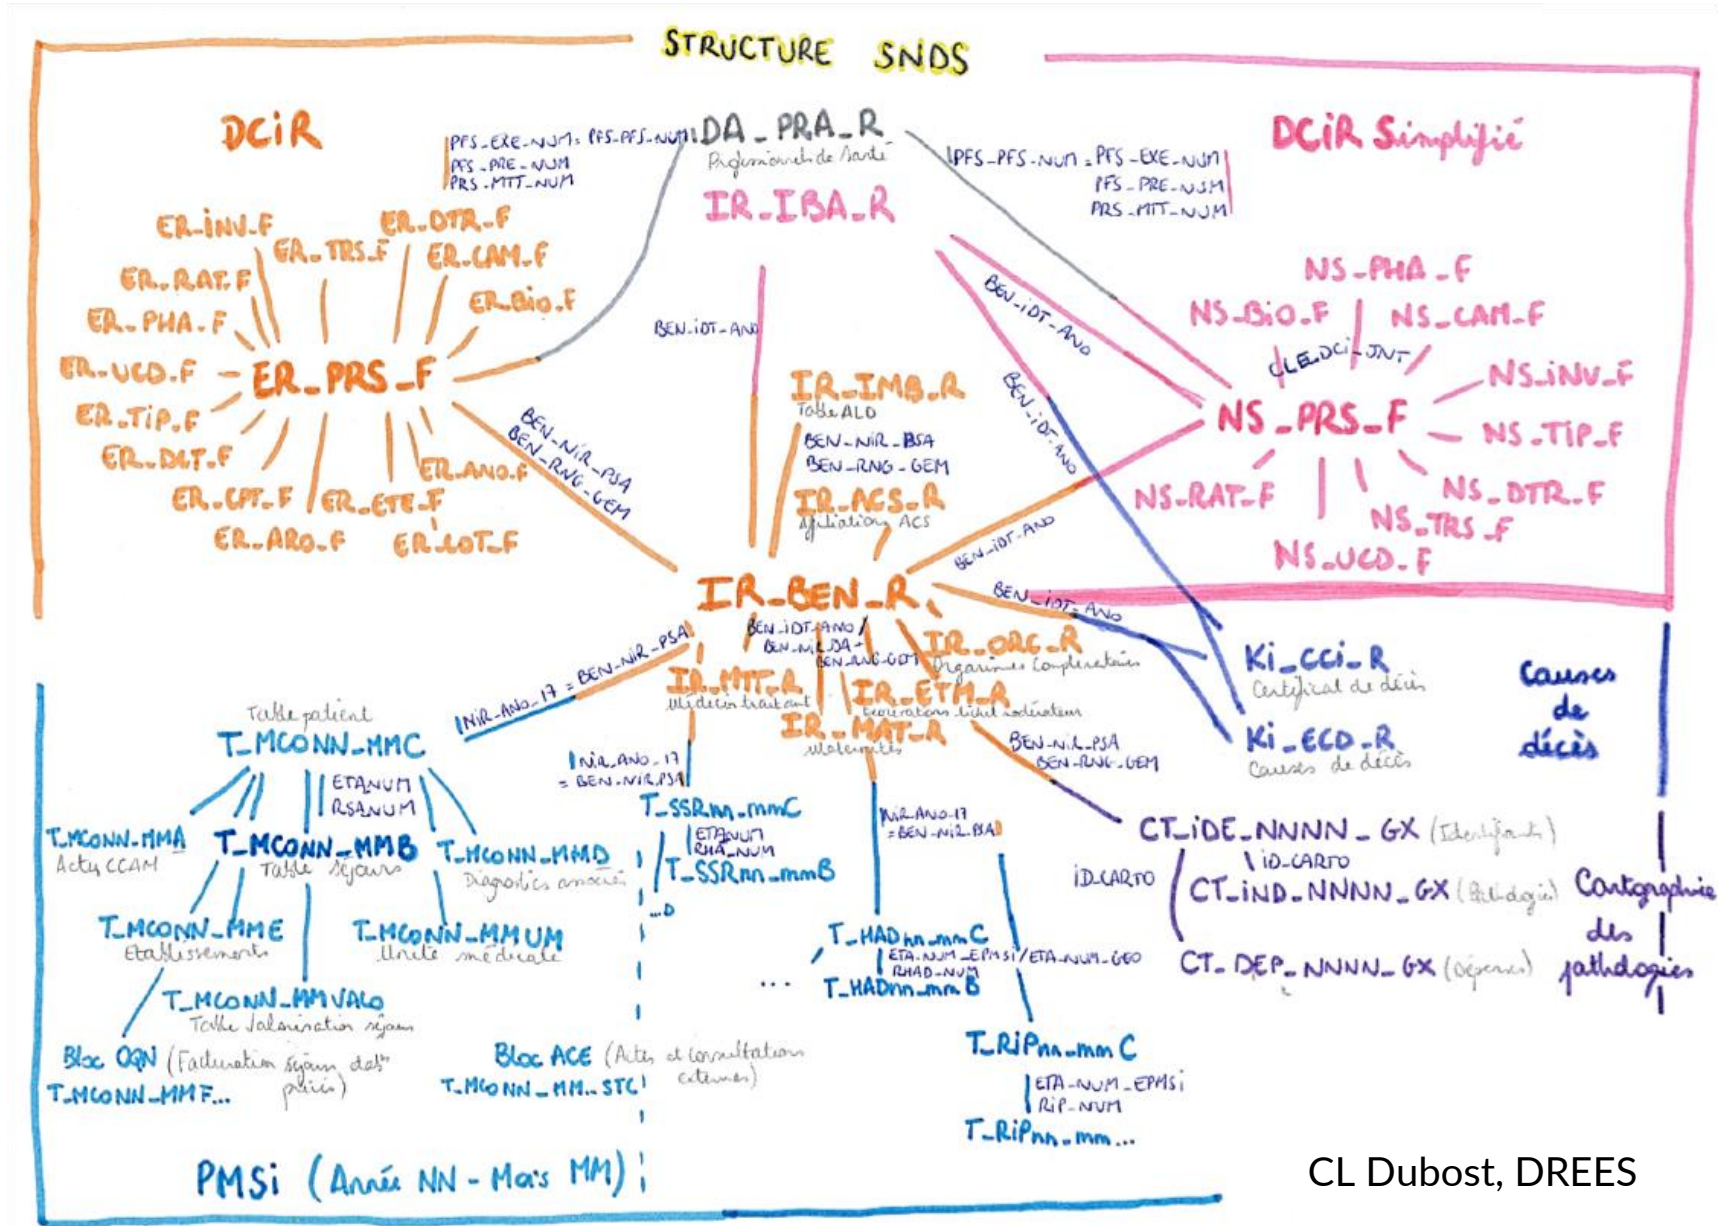 STRUCTURE SNDS
DCiR
PFS-EXE-NUM= PFS-PFS-NUM
PFS-PRE-NUM
PRS-MTT-NUM
DA_PRA_R
Professionnels de Santé
IR_IBA_R
PFS-PFS-NUM = PFS-EXE-NUM
PFS-PRE-NUM
PRS-MTT-NUM
DCiR Simplifié
ER-iNV-F
ER-DTR-F
ER_TRS_F
ER-CAM-F
ER-RAT-F
ER-BiO-F
ER-PHA-F
ER-UCD-F
ER_PRS_F
ER-TiP-F
ER-DCT-F
ER-ANO-F
ER-CPT-F
ER-ETE-F
ER-ARO-F
ER-LOT-F
BEN-NiR-PSA
BEN-RNG-GEM
BEN-iDT-ANO
BEN-iDT-ANO
BEN-iDT-ANO
IR_IMB_R
Table ALD
BEN-NiR-PSA
BEN-RNG-GEM
IR_ACS_R
Affiliation ACS
NS_PHA_F
NS-BiO-F
NS_CAM-F
CLE_DCi_JNT
NS-iNV-F
NS_PRS_F
NS-TiP-F
NS-RAT-F
NS_DTR-F
NS_TRS_F
NS-UCD-F
BEN-iDT-ANO
IR_BEN_R
BEN_iDT_ANO
BEN-iDT-ANO /
BEN-NiR-PSA +
BEN-RNG-GEM
IR_ORG_R
Organismes Complémentaires
IR_MTT_R
Médecin traitant
IR_ETM_R
Exonérations ticket modérateur
IR_MAT_R
Maternités
Ki_CCi_R
Certificat de décès
Ki_ECD_R
Causes de décès
Causes
de
décès
NiR-ANO-17 = BEN-NiR-PSA
Table patient
T_MCONN_MMC
ETANUM
RSANUM
T_MCONN_MMA
Actes CCAM
T_MCONN_MMB
Table séjours
T_MCONN_MMD
Diagnostics associés
T_MCONN_MME
Etablissements
T_MCONN_MMUM
Unité médicale
T_MCONN_MMVALO
Table valorisation séjour
Bloc OQN (Facturation séjours étabts
privés)
T_MCONN_MMF...
Bloc ACE (Actes et consultations
externes)
T_MCONN_MM..STC
NiR_ANO_17
= BEN-NiR-PSA
T_SSRnn_mmC
ETANUM
RHA_NUM
T_SSRnn_mmB
...D
NiR-ANO-17
=BEN-NiR-PSA
T_HADnn_mmC
ETA-NUM_EPMSi/ETA-NUM-GEO
RHAD-NUM
T_HADnn_mmB
...
T_RiPnn_mmC
ETA-NUM_EPMSi
RiP-NUM
T_RiPnn_mm...
BEN-NiR-PSA
BEN-RNG-GEM
CT_iDE_NNNN_GX (Identifiants)
iD_CARTO
iD-CARTO
CT_iND_NNNN_GX (Pathologies)
CT_DEP_NNNN_GX (Dépenses)
Cartographie
des
pathologies
PMSi (Année NN - Mois MM)
CL Dubost, DREES